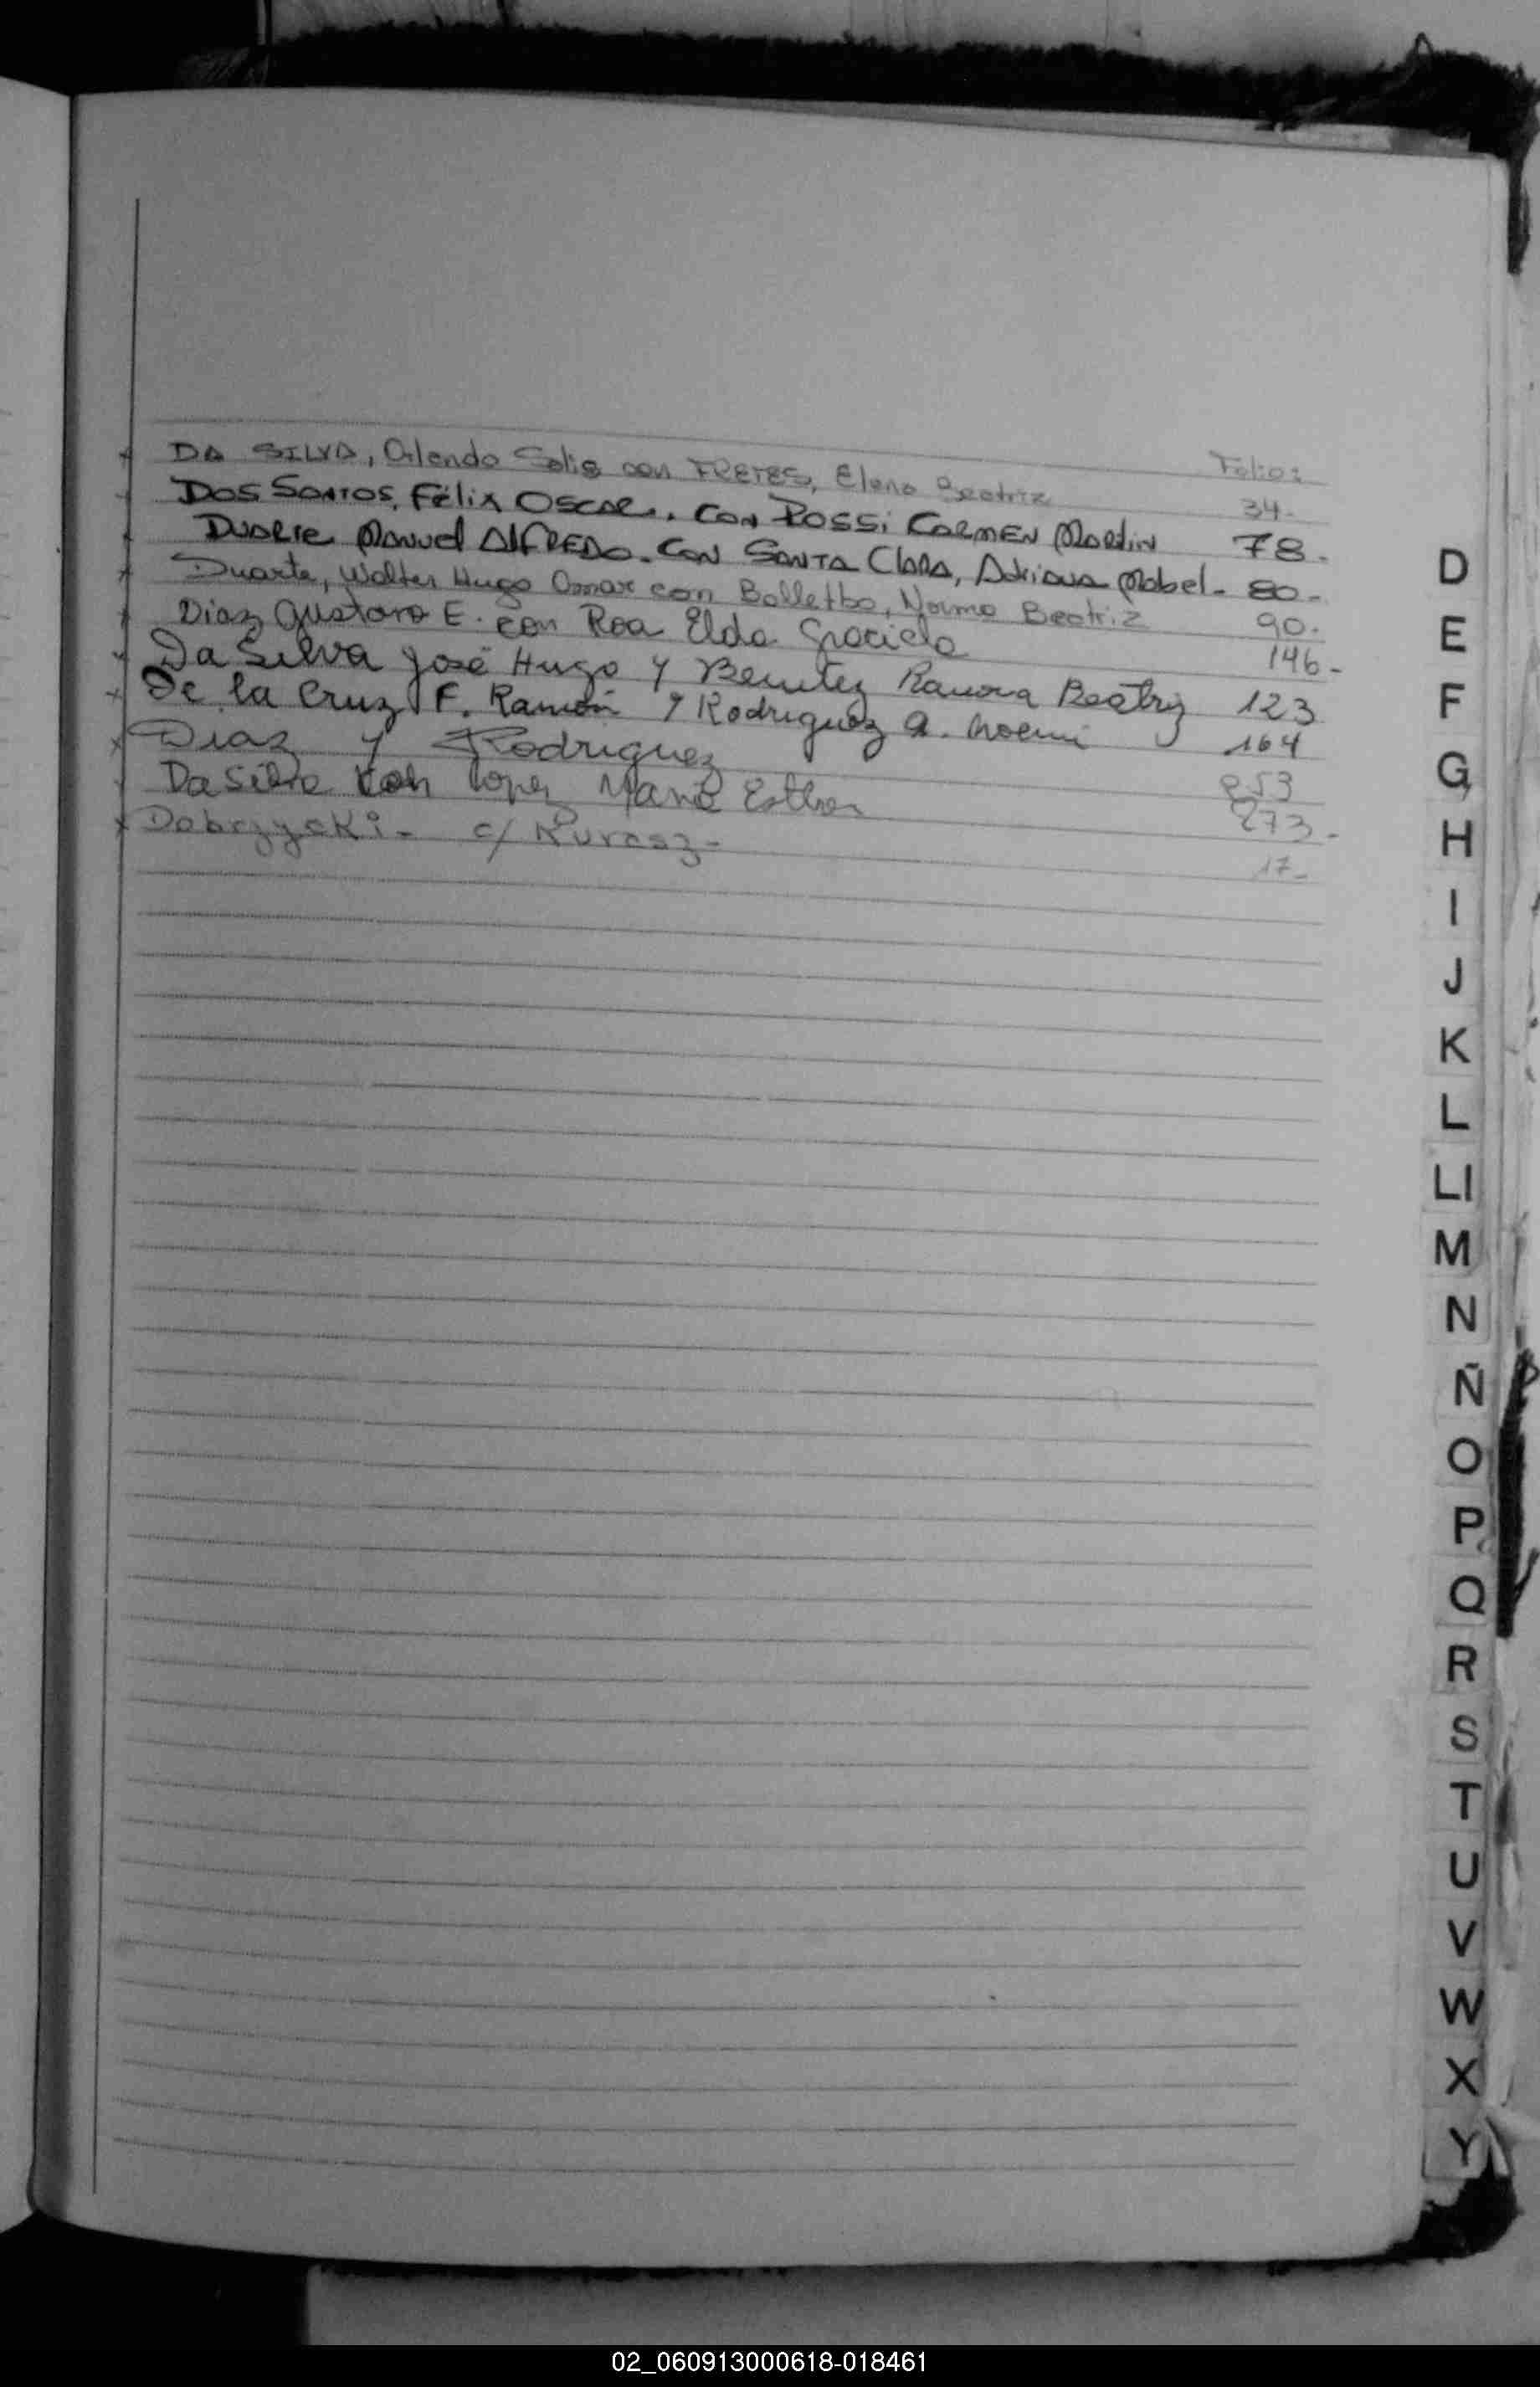 Folio:
DA SILVA, Orlando Solis con FRETES, Elena Beatriz 34-
DOS SANTOS, Félix OSCAR. CON ROSSi CARMEN Martin 78-
DUARTE Manuel AlFREDO. CON SANTA ClARA, Adriana Mabel- 80-
Duarte, Walter Hugo Omar con Balletbo, Norma Beatriz 90-
Diaz Gustavo E. con Roa Elda Graciela 146-
Da Silva José Hugo y Benitez Ramona Beatriz 123
De la Cruz F. Ramón y Rodriguez A. Noemi 164
Diaz y Rodriguez 253
Da Silva con Lopez Maria Esther 273-
Dobrzycki- c/ Kurasz- 17-
D
E
F
G
H
I
J
K
L
Ll
M
N
Ñ
O
P
Q
R
S
T
U
V
W
X
Y
02_060913000618-018461